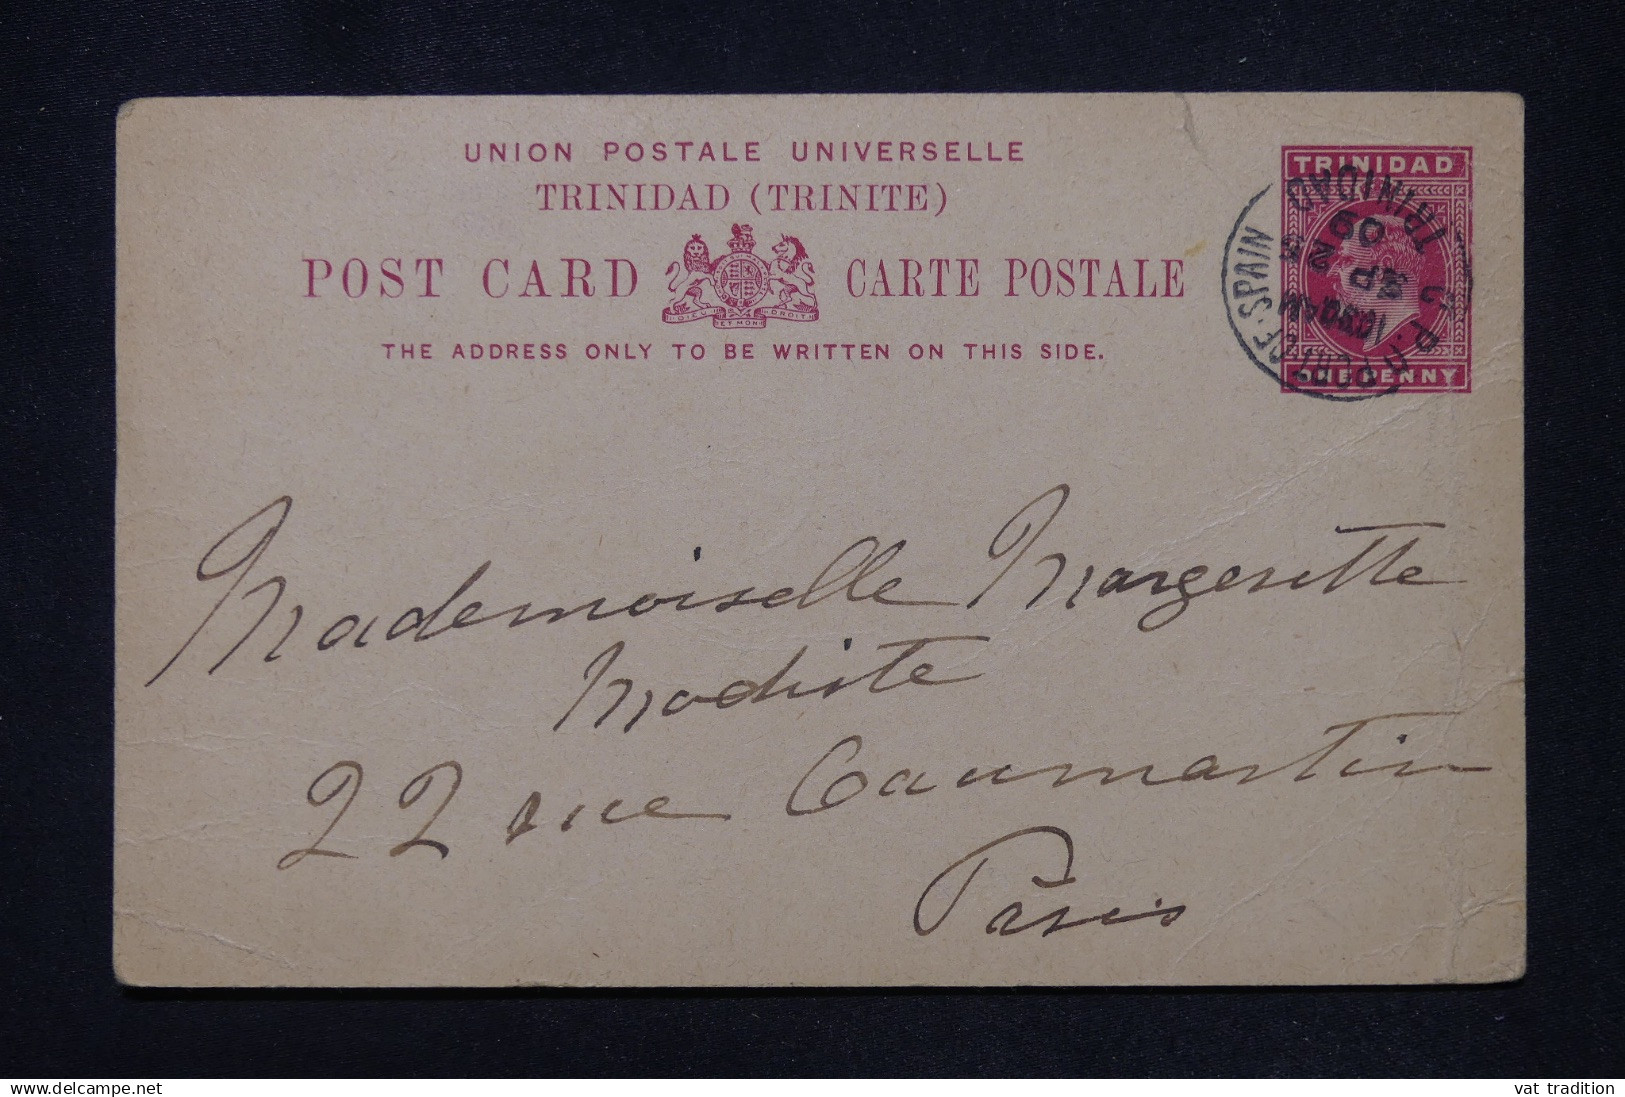 UNION POSTALE UNIVERSELLE
TRINIDAD (TRINITE)
POST CARD CARTE POSTALE
DIEU ET MON DROIT
THE ADDRESS ONLY TO BE WRITTEN ON THIS SIDE.
TRINIDAD
ONE PENNY
G.P.O. PORT-OF-SPAIN TRINIDAD
SP
09
Mademoiselle Margeritte
Modiste
22 rue Caumartin
Paris
www.delcampe.net
vat tradition